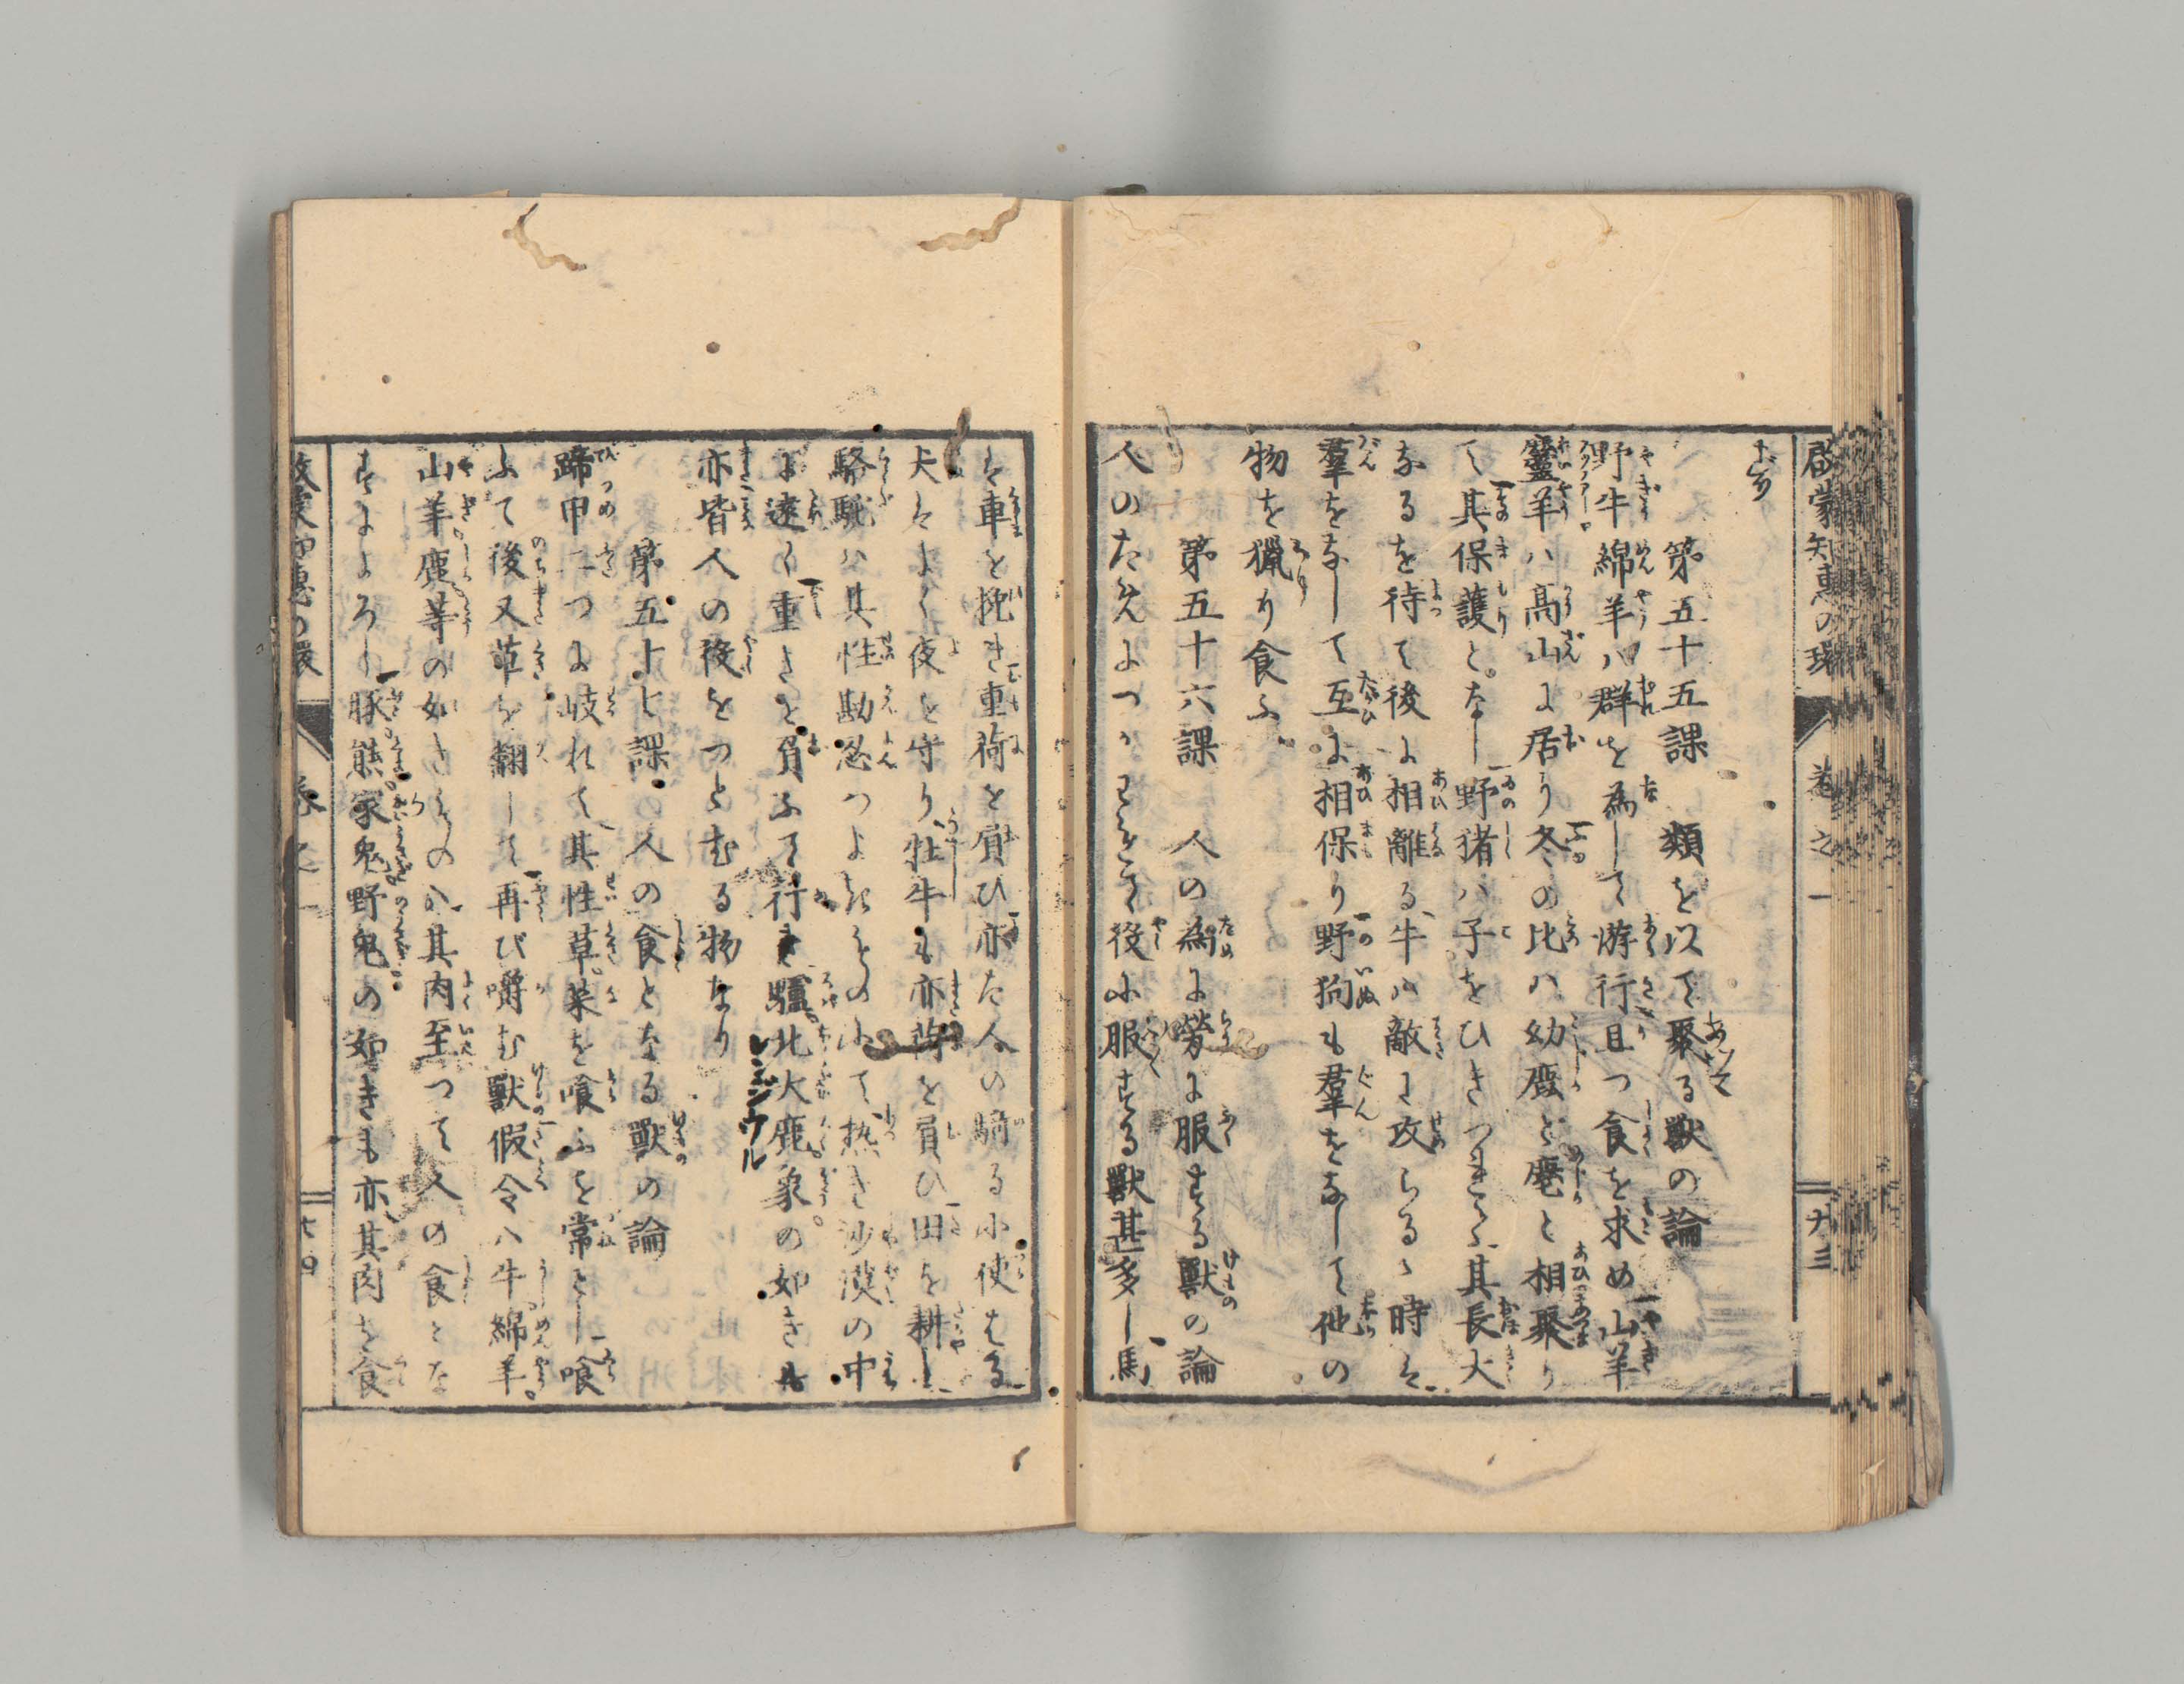 啓蒙知恵の環 巻之一 九三
第五十五課 類を以て聚る獣の論
野牛綿羊ハ群を為して游行且つ食を求め山羊
羚羊ハ高山に居り冬の比ハ幼鹿と麀と相聚り
て其保護となし野猪ハ子をひきつれ其長大
なるを待て後に相離る牛ハ敵に攻らるゝ時は
羣をなして互に相保り野狗も羣をなして他の
物を猟り食ふ
第五十六課 人の為に労に服する獣の論
人のためにつかはれて役に服する獣甚多し馬
は車を挽き重荷を負ひ亦た人の騎る小使はる
犬はよく夜を守り牡牛も亦荷を負ひ田を耕し
駱駝ハ其性勘忍つよきものにて熱き沙漠の中
に遠く重きを負ふて行き驢北大鹿象の如き
レンジウル
亦皆人の役をつとむる物なり
第五十七課 人の食となる獣の論
蹄甲二つに岐れて其性草菜を喰ふを常とし喰
ふて後又草を翻して再び嚼む獣假令ハ牛綿羊
山羊鹿等の如きものハ其肉至つて人の食とな
すによろし豚熊家兎野兎の如きも亦其肉を食